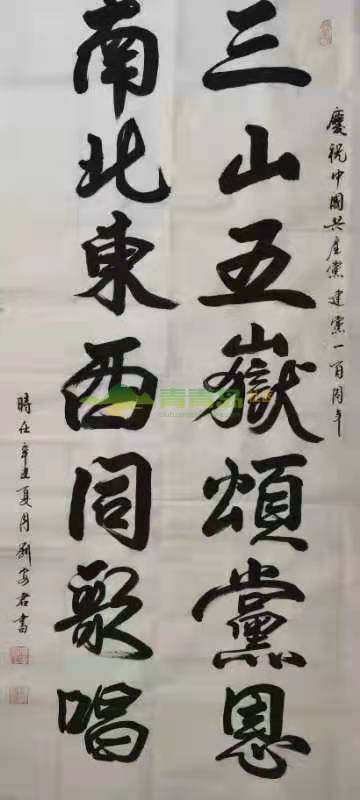 慶祝中國共產黨建黨一百周年
三山五嶽頌黨恩
南北東西同歌唱
時在辛丑夏月劉安君書
青青岛